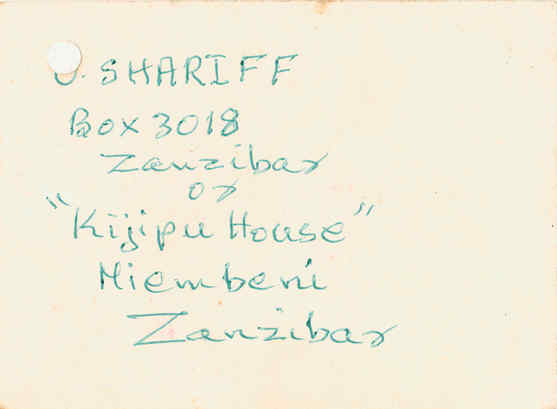 J. SHARIFF
Box 3018
Zanzibar
or
"Kijipu House"
Miembeni
Zanzibar